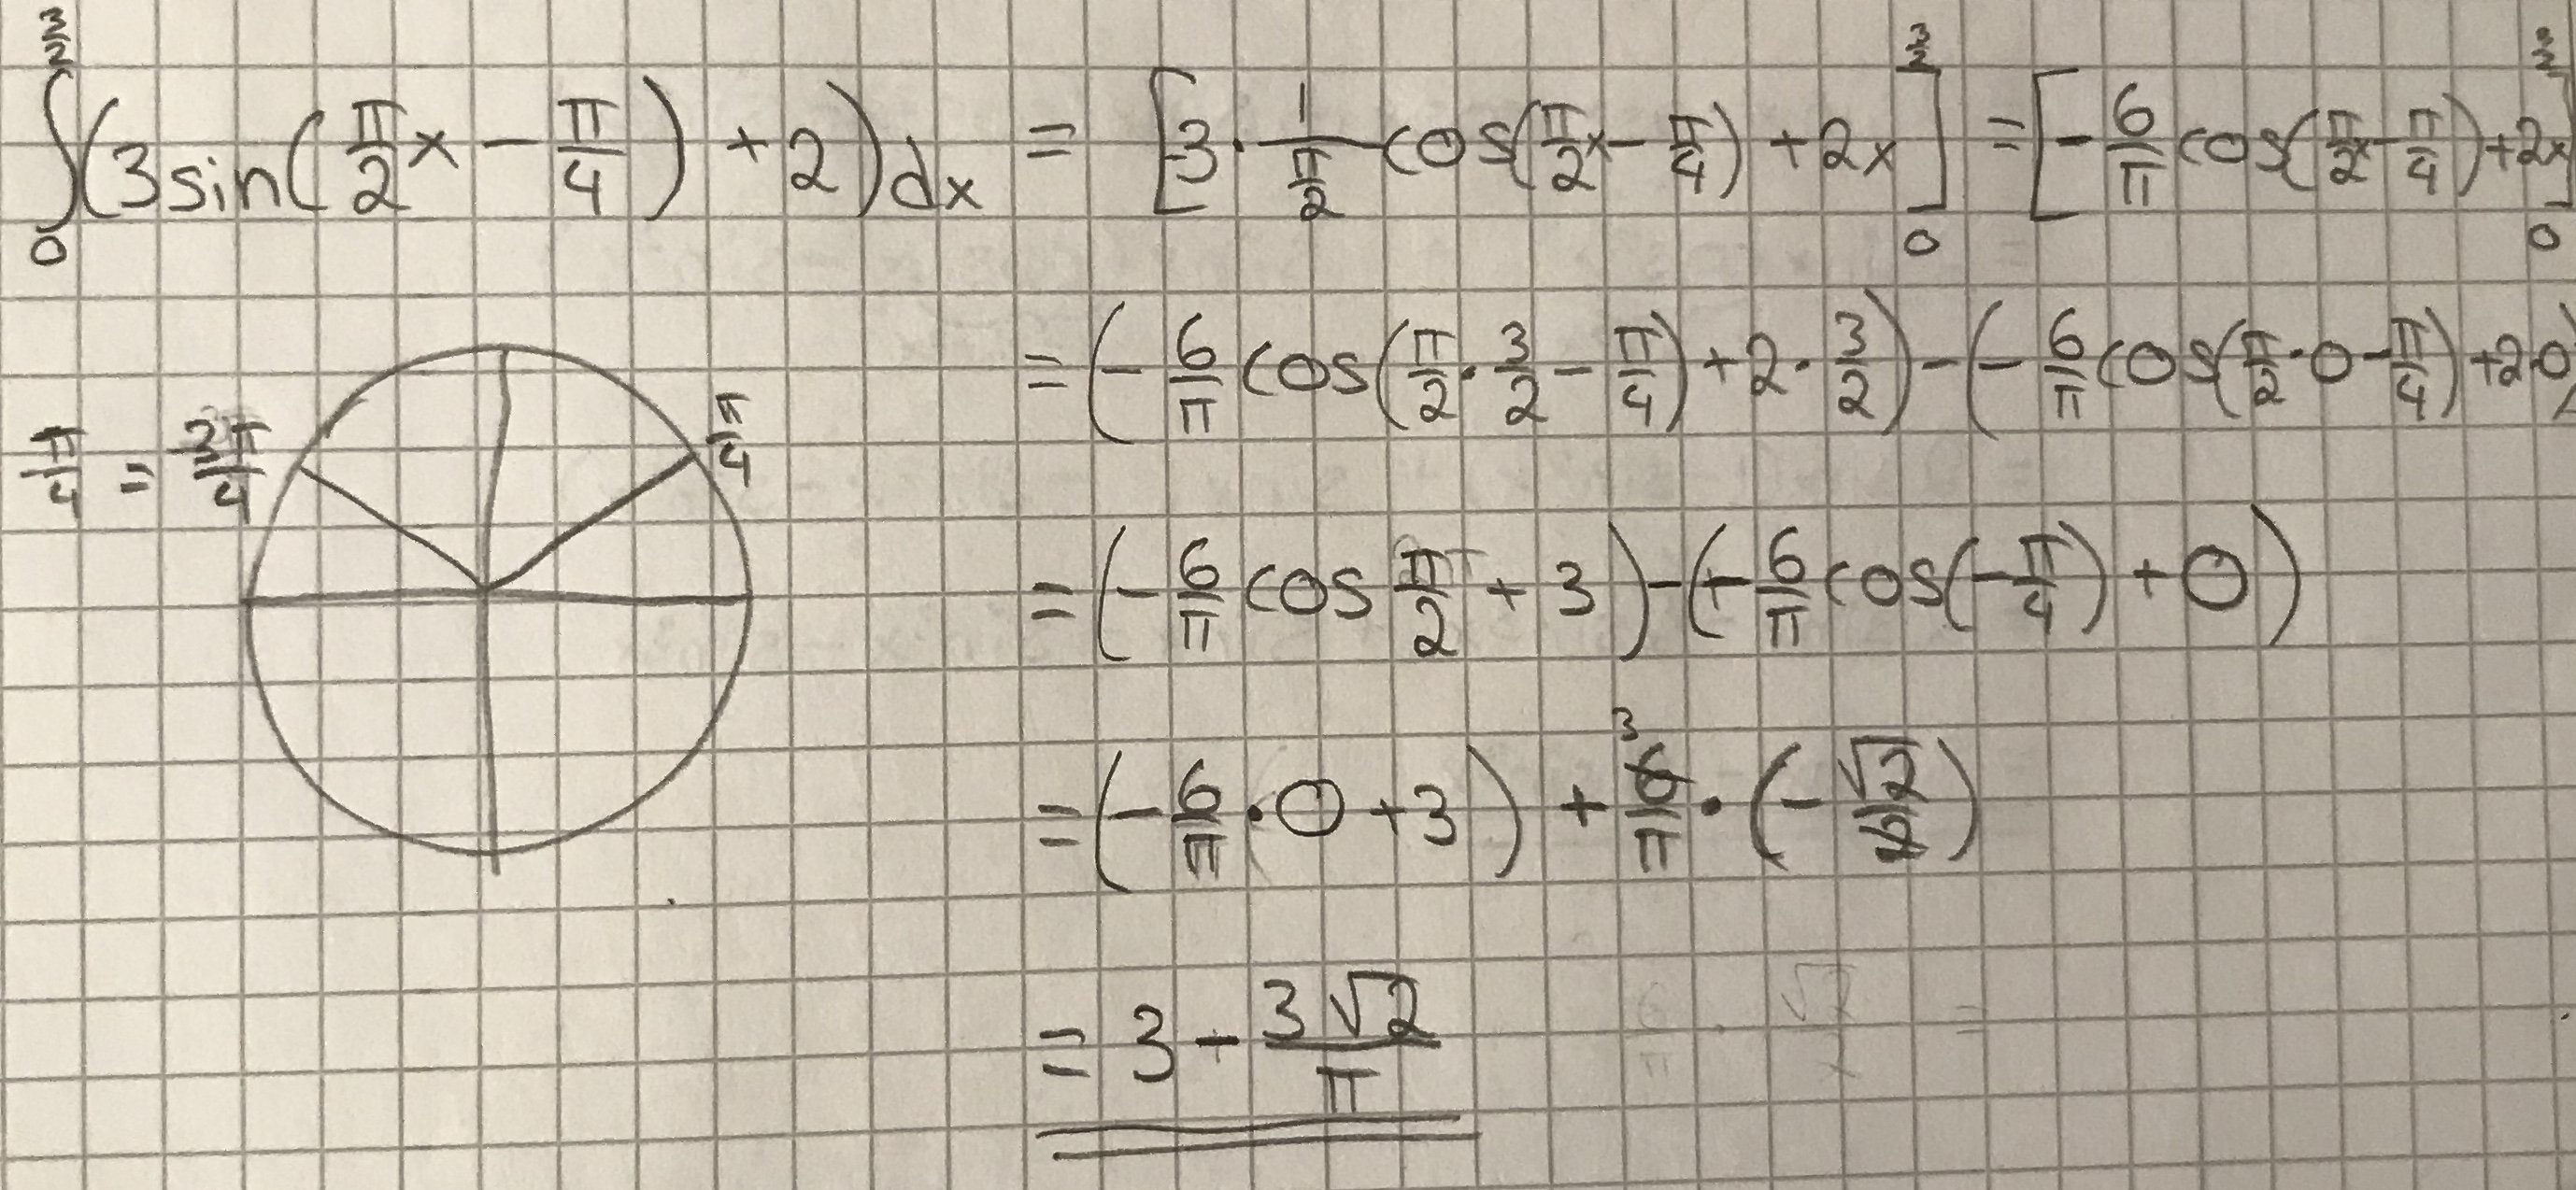 ∫₀^(3/2) (3 sin(π/2 x − π/4) + 2) dx = [-3 · 1/(π/2) cos(π/2 x − π/4) + 2x]₀^(3/2) = [− 6/π cos(π/2 x − π/4) + 2x]₀^(3/2)
= (− 6/π cos(π/2 · 3/2 − π/4) + 2 · 3/2) − (− 6/π cos(π/2 · 0 − π/4) + 2·0)
π/4 = 3π/4
π/4
= (− 6/π cos π/2 + 3) − (− 6/π cos(− π/4) + 0)
= (− 6/π · 0 + 3) + 3 6/π · (− √2/2)
= 3 − 3√2/π